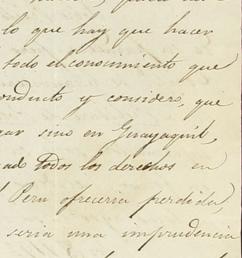 lo que hay que hacer
todo el conocimiento que
conducto y considero, que
sino en Guayaquil,
todos los derechos en
Peru ofreceria perdida,
seria una imprudencia